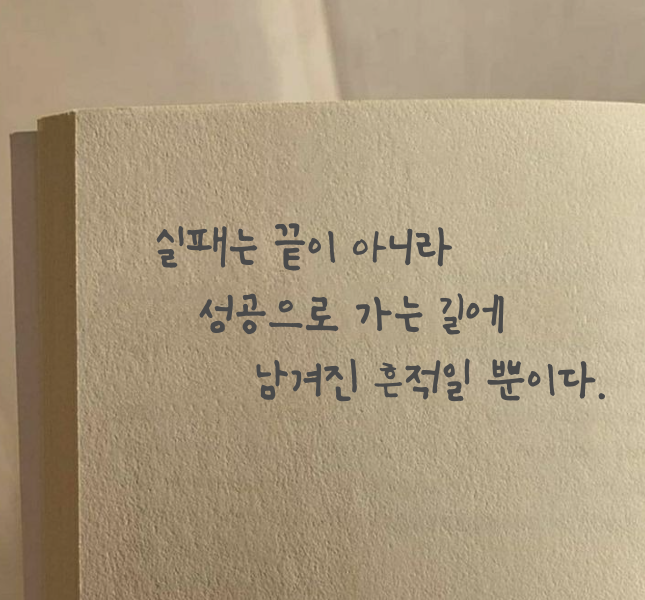 실패는 끝이 아니라
성공으로 가는 길에
남겨진 흔적일 뿐이다.